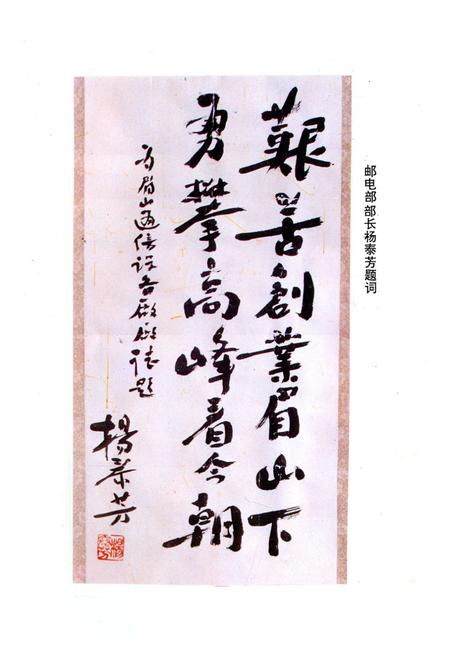 邮电部部长杨泰芳题词
艱苦創業眉山下
勇攀高峰看今朝
为眉山通信设备廠廠誌题
楊泰芳